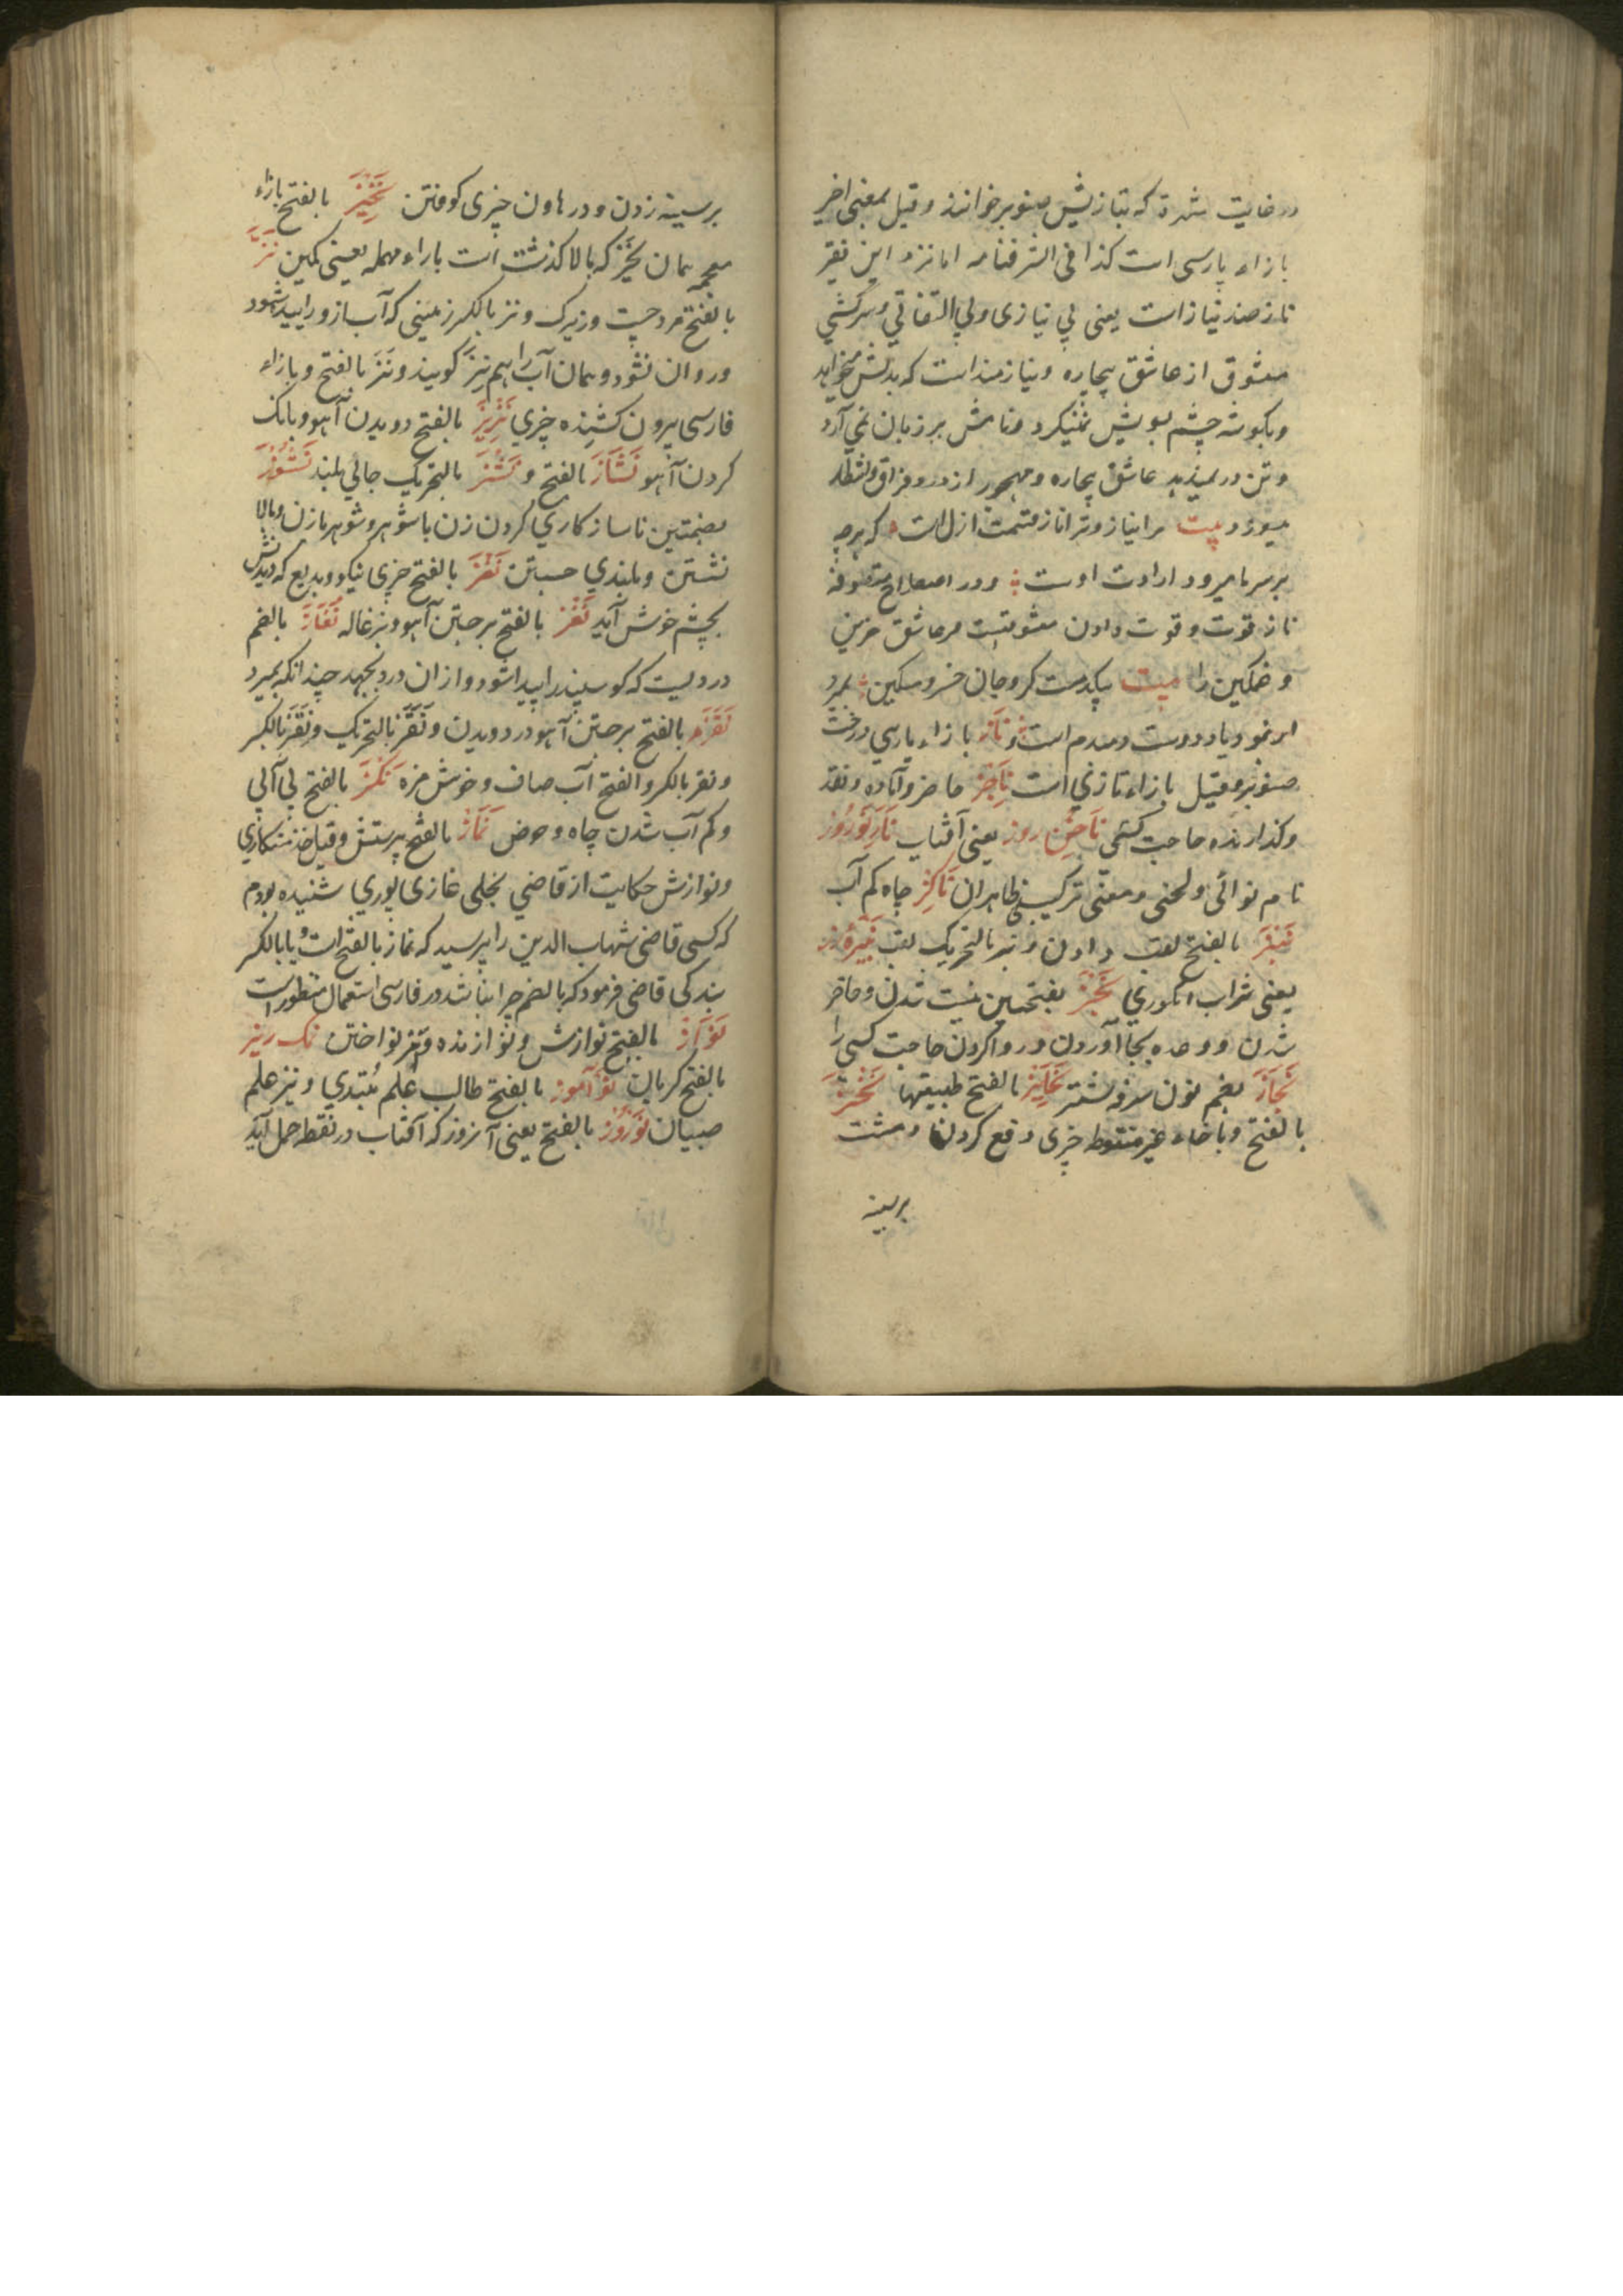 در غایت شهرة که بتازیش صنوبر خوانند و قیل بمعنی اخیر
بازاء پارسی است کذا فی الشرفنامه اما نزد این فقیر
ناز ضد نیاز است یعنی بی نیازی و بی التفاتی و سرکشی
معشوق از عاشق بیچاره و نیازمند است که بدلش میخواهد
و بکوشه چشم بویش نمیکرد و نامش بر زبان نمی آرد
و تن در نمیدهد عاشق بیچاره و مهجور از درد فراق و انتظار
میسوزد بیت مرا نیاز و ترا ناز قسمت ازل است که هرچه
بر سر ما میرود ارادت اوست و در اصطلاح متصوفه
ناز قوت و قوت دادن معشوقست مر عاشق حزین
و غمکین را بیت یکدست کرو جان خسرو مسکین بمیرد
و یاد دوست همدم است و ناژ بازاء پارسی درخت
صنوبر و قیل بازاء تازی است ناجز حاضر و آماده و نقد
و کذارنده حاجت کسی ناخن روز یعنی آفتاب ناز نوروز
نام نوائی و لحنی و معنی ترکیبی ظاهر ان ناکز چاه کم آب
نبز بالفتح لقب دادن و نبز بالتحریک لقب نبیره رز
یعنی شراب انکوری نجز بفتحتین نیست شدن و حاضر
شدن و وعده بجا آوردن و روا کردن حاجت کسی را
نحاز بضم نون سرفه شتر نحایز بالفتح طبیعتها نحز
بالفتح و باحاء غیر منقوط چیزی دفع کردن و مشت
بر سینه
بر سینه زدن و در هاون چیزی کوفتن نخیز بالفتح بازاء
معجمه همان نخیر که بالا کذشت است باراء مهمله یعنی کمین نز
بالفتح مرد چست و زیرک و نز بالکسر زمینی که آب از و زاییده شود
و روان نشود و همان آب را هم نز کویند و نژ بالفتح و بازاء
فارسی بیرون کشنده چیزی نزیز بالفتح دویدن آهو و بانک
کردن آهو نشاز بالفتح و نشز بالتحریک جائی بلند نشوز
بضمتین ناسازکاری کردن زن باشوهر و شوهر بازن و بالا
نشستن و بلندی جستن نغز بالفتح چیزی نیکو و بدیع که دیدنش
بچشم خوش آید نفز بالفتح برجستن آهو و بزغاله نقاز بالضم
دردیست که کوسپند را پیدا شود و از ان درد بجهد چندانکه بمیرد
نقز بالفتح برجستن آهو در دویدن و نقز بالتحریک و نقز بالکسر
و نقز بالکسر و الفتح آب صاف و خوش مزه نکز بالفتح بی آبی
و کم آب شدن چاه و حوض نماز بالفتح پرستش و قیل خدمتکاری
و نوازش حکایت از قاضی غازی پوری شنیده بودم
که کسی قاضی شهاب الدین را پرسید که نماز بالفتح است و یا بالکسر
بندکی قاضی فرمود که بالضم چرا نباشد در فارسی استعمال منظور است
نواز بالفتح نوازش و نوازنده و نیز نواختن نمک ریز
بالفتح کریان نوآموز بالفتح طالب علم مبتدی و نیز علم
صبیان نوروز بالفتح یعنی آنروز که آفتاب در نقطه حمل آید